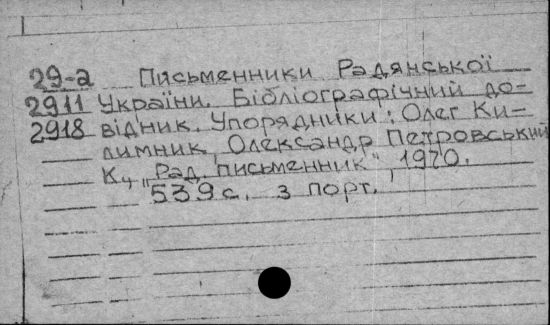 29-а Письменники Радянської
2911 України. Бібліографічний до-
2918 відник. Упорядники: Олег Ки-
лимник, Олександр Петровський
К., „Рад. письменник", 1970.
539 с. з порт.